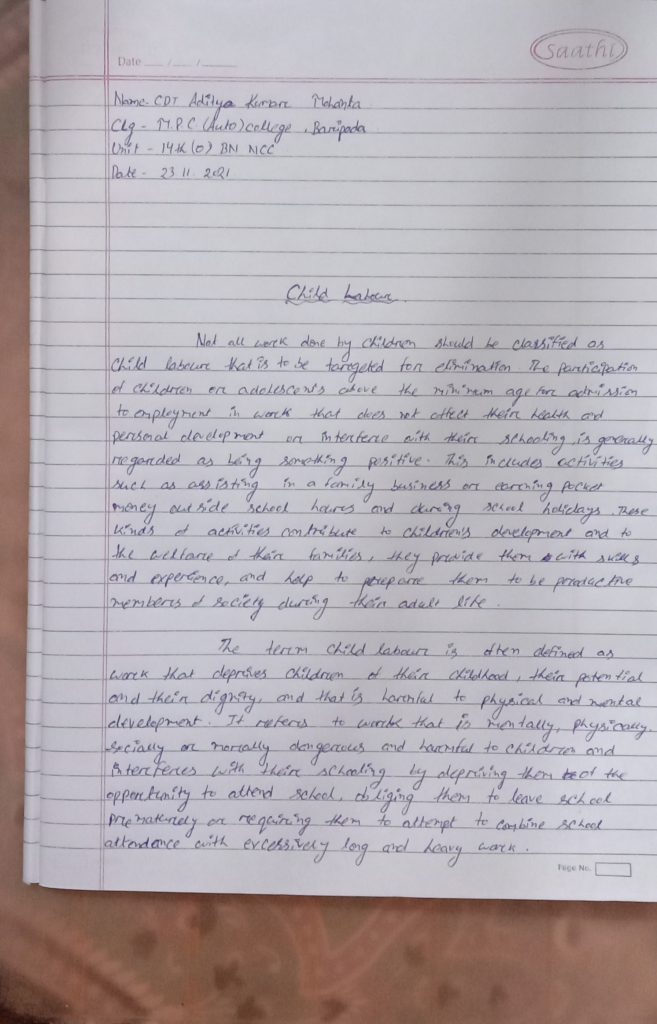 saathi
Date __/__/__
Name- CDT Aditya Kumar Mohanta
Clg - M.P.C (Auto) college, Baripada
Unit - 14th (O) BN NCC
Date - 23 11 2021
Child Labour
Not all work done by children should be classified as
child labour that is to be targeted for elimination. The participation
of children or adolescents above the minimum age for admission
to employment in work that does not affect their health and
personal development or interfere with their schooling, is generally
regarded as being something positive. This includes activities
such as assisting in a family business or earning pocket
money outside school hours and during school holidays. These
kinds of activities contribute to children's development and to
the welfare of their families, they provide them with skills
and experience, and help to prepare them to be productive
members of society during their adult life.
The term child labour is often defined as
work that deprives children of their childhood, their potential
and their dignity, and that is harmful to physical and mental
development. It refers to work that is mentally, physically,
socially or morally dangerous and harmful to children and
interferes with their schooling by depriving them of the
opportunity to attend school, obliging them to leave school
prematurely or requiring them to attempt to combine school
attendance with excessively long and heavy work.
Page No.